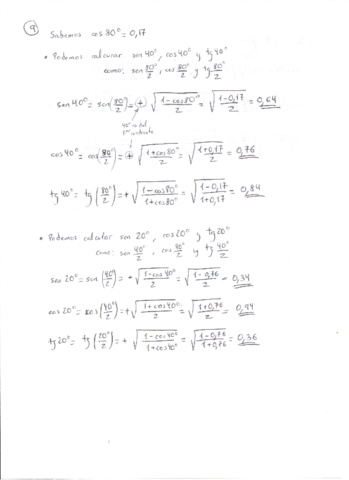 9 Sabemos cos 80° = 0,17
• Podemos calcular sen 40°, cos 40° y tg 40°
como: sen 80°/2, cos 80°/2 y tg 80°/2
sen 40° = sen(80°/2) = + √((1-cos80°)/2) = √((1-0,17)/2) = 0,64
40° en el
1er cuadrante
cos 40° = cos(80°/2) = + √((1+cos80°)/2) = √((1+0,17)/2) = 0,76
tg 40° = tg(80°/2) = + √((1-cos80°)/(1+cos80°)) = √((1-0,17)/(1+0,17)) = 0,84
• Podemos calcular sen 20°, cos 20° y tg 20°
como: sen 40°/2, cos 40°/2 y tg 40°/2
sen 20° = sen(40°/2) = + √((1-cos40°)/2) = √((1-0,76)/2) = 0,34
cos 20° = cos(40°/2) = + √((1+cos40°)/2) = √((1+0,76)/2) = 0,94
tg 20° = tg(20°/2) = + √((1-cos40°)/(1+cos40°)) = √((1-0,76)/(1+0,76)) = 0,36